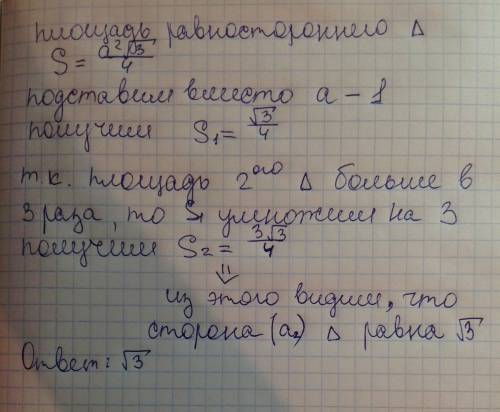 площадь равностороннего Δ
S = a²√3/4
подставим вместо a - 1
получим S₁ = √3/4
т.к. площадь 2ого Δ больше в
3 раза, то S₁ умножим на 3
получим S₂ = 3√3/4
⇓
из этого видим, что
сторона (a₂) Δ равна √3
Ответ: √3